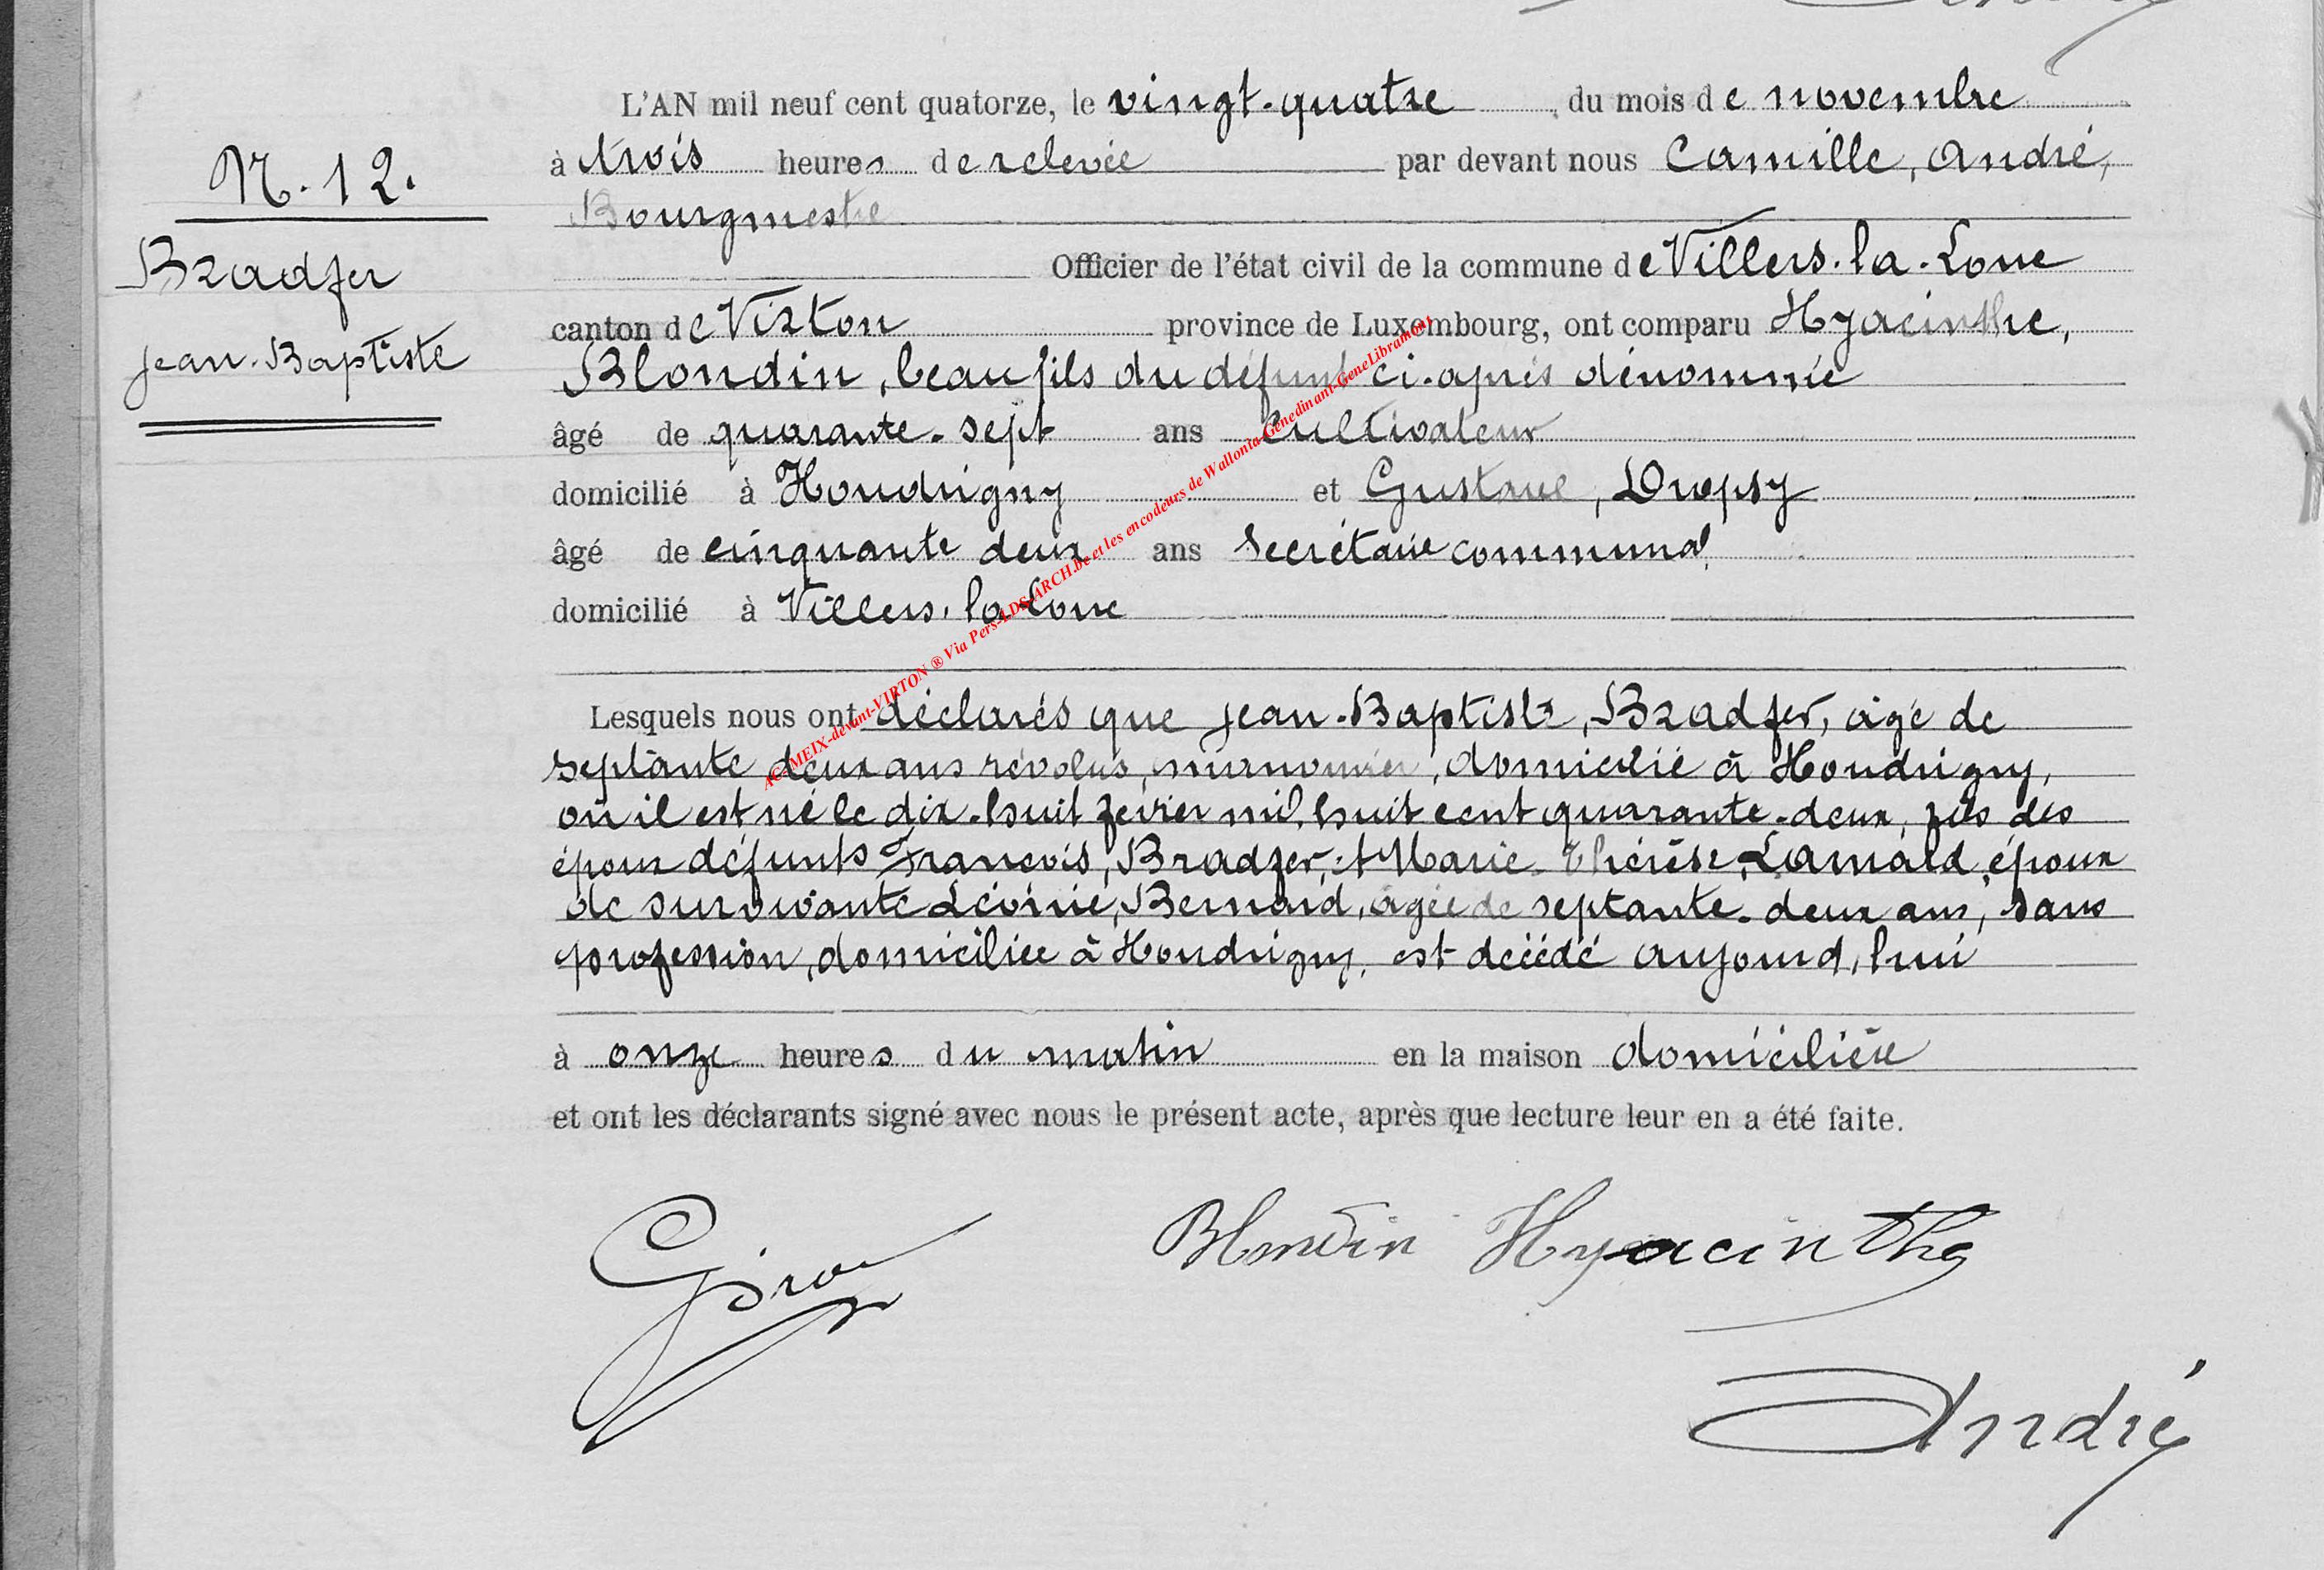 L'AN mil neuf cent quatorze, le vingt-quatre du mois de novembre
N. 12.
à trois heures de relevée par devant nous Camille, André,
Bourgmestre
Bradfer
Officier de l'état civil de la commune de Villers-la-Loue
Jean-Baptiste
canton de Virton province de Luxembourg, ont comparu Hyacinthe,
Blondin, beau fils du défunt ci-après dénommé
âgé de quarante-sept ans Cultivateur
domicilié à Houdrigny et Gustave,
âgé de cinquante deux ans Secrétaire communal
domicilié à Villers-la-Loue
Lesquels nous ont déclarés que Jean-Baptiste, Bradfer, âgé de
septante deux ans révolus, manouvrier, domicilié à Houdrigny,
où il est né le dix-huit février mil huit cent quarante-deux, fils des
époux défunts François, Bradfer, et Marie-Thérèse, époux
de survivante Léonie, Bernard, âgée de septante-deux ans, sans
profession, domiciliée à Houdrigny, est décédé aujourd'hui
à onze heures du matin en la maison domicilière
et ont les déclarants signé avec nous le présent acte, après que lecture leur en a été faite.
Blondin Hyacinthe
André
AC-MEIX-devant-VIRTON ® Via Pers-LDS-ARCH.be et les encodeurs de Wallonia-Genedinant-GeneLibramont